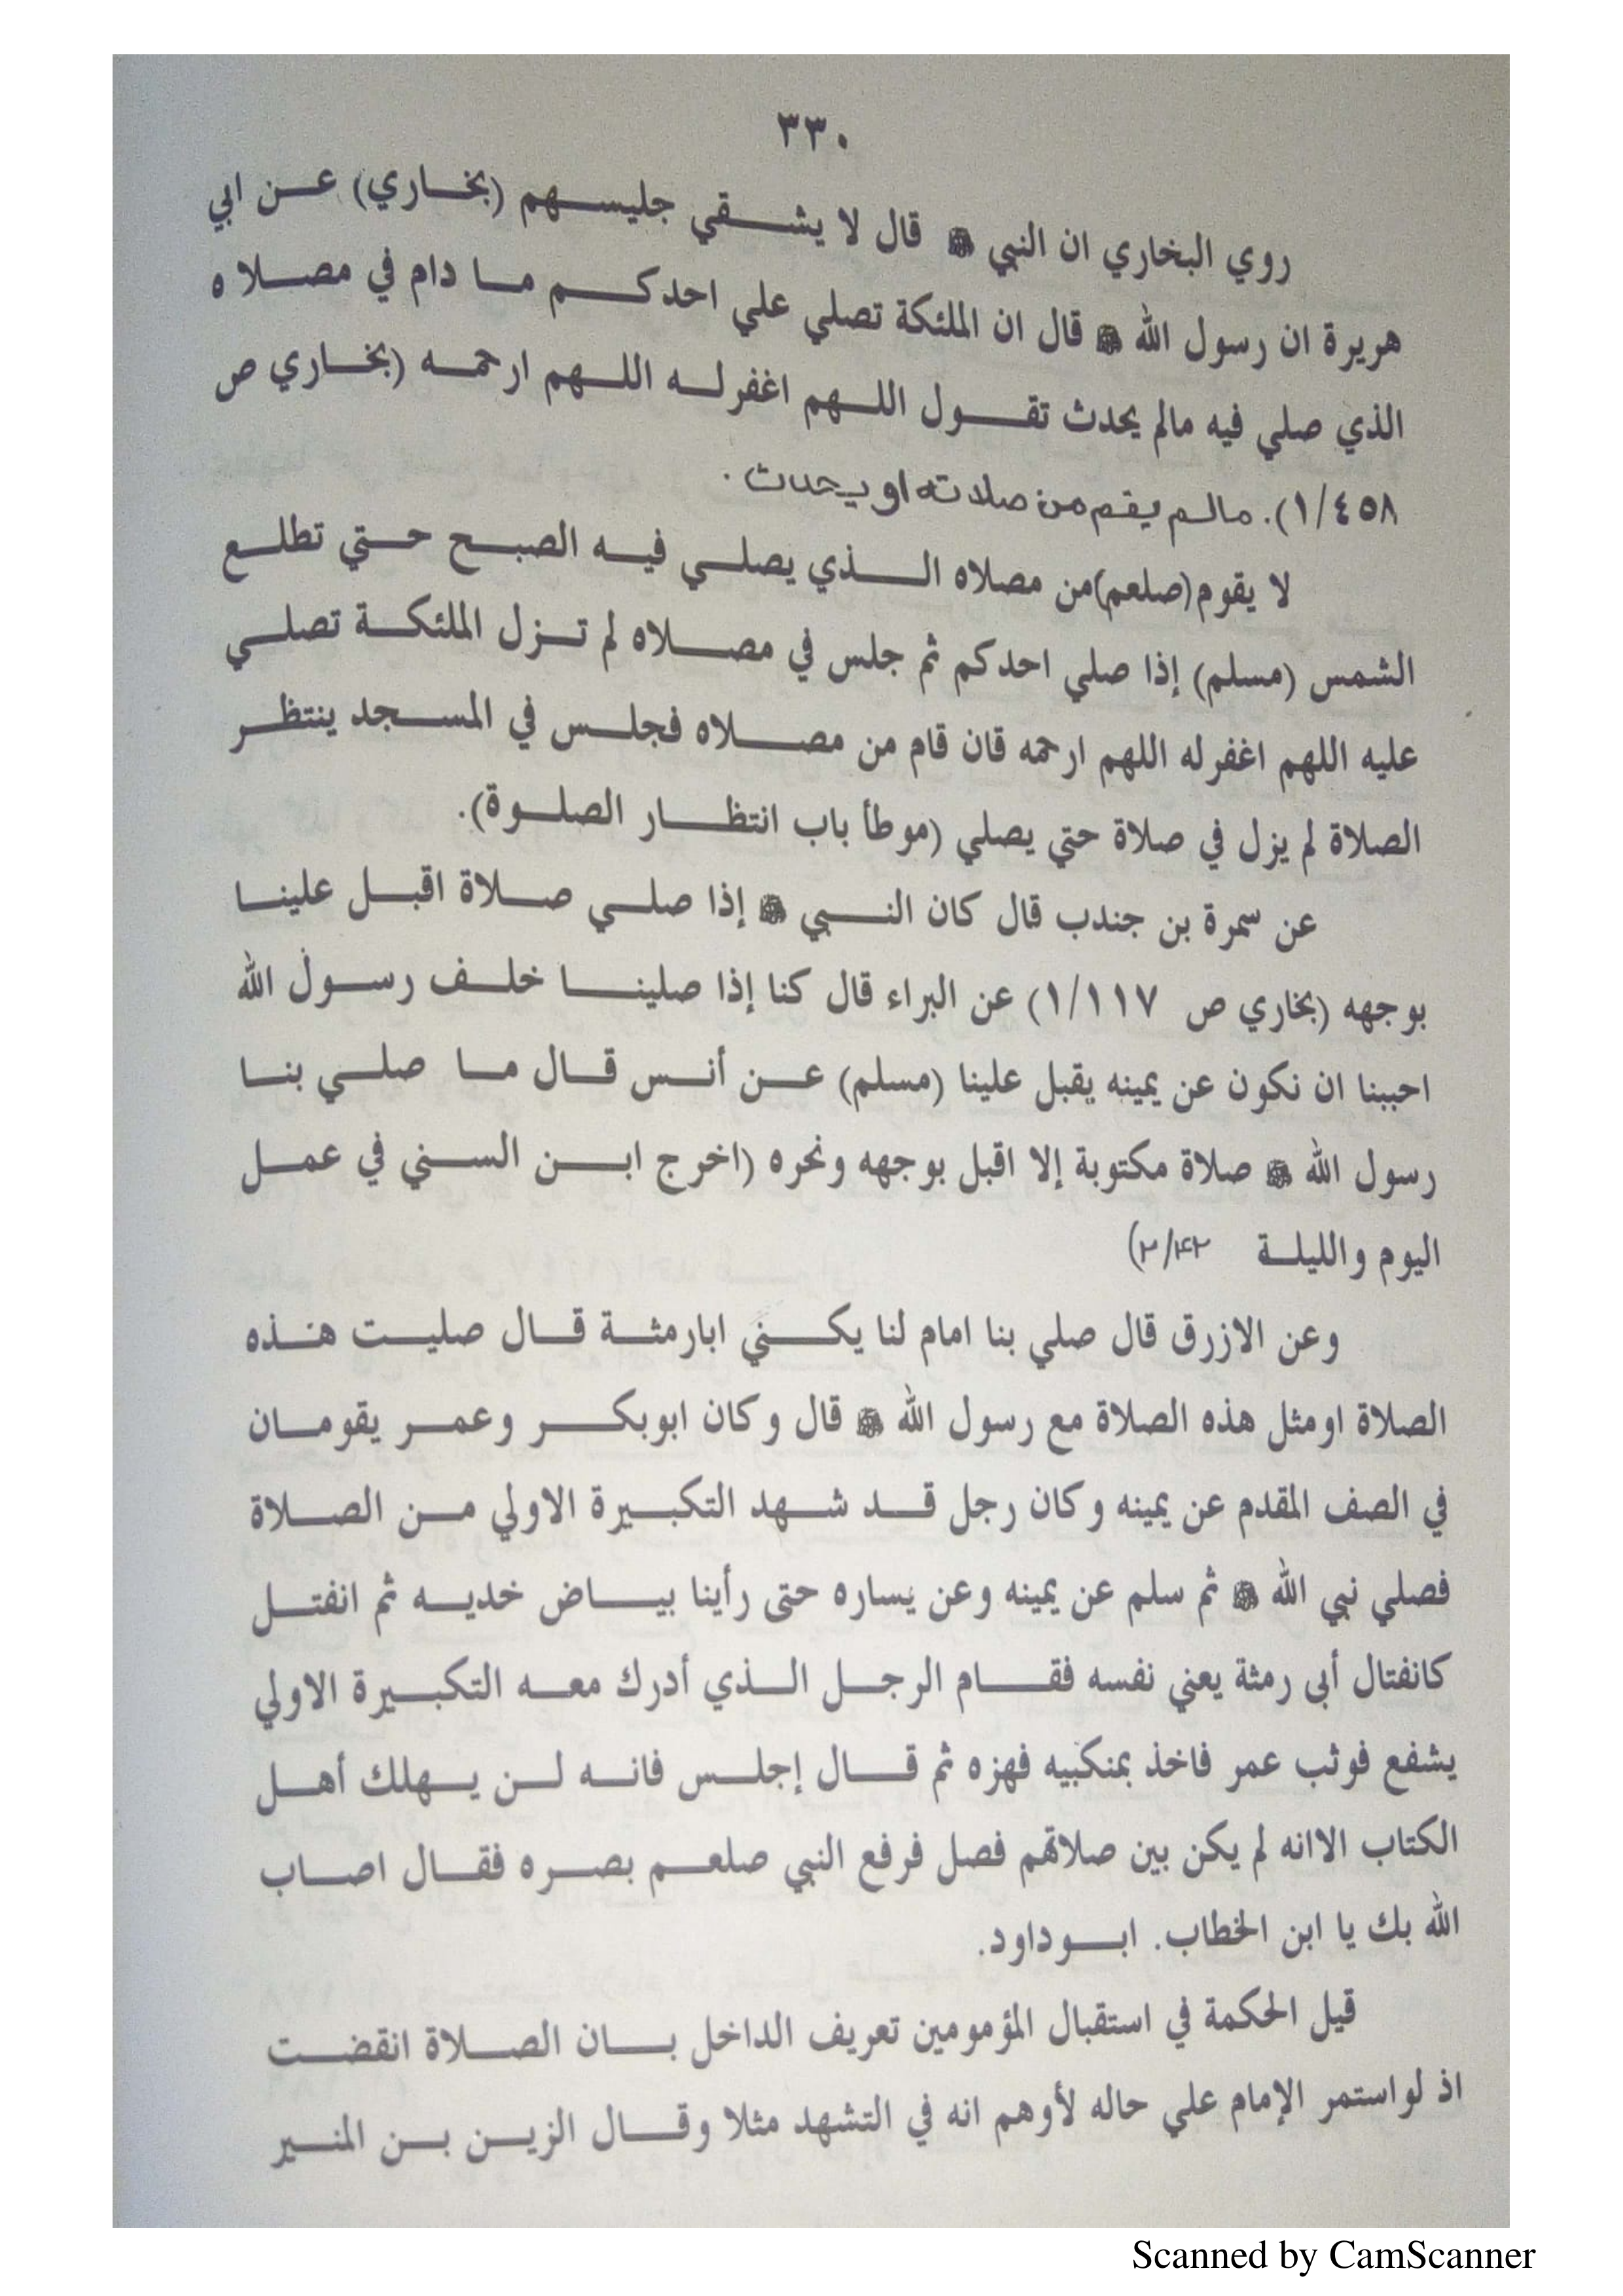 ٣٣٠
روي البخاري ان النبي ﷺ قال لا يشقي جليسهم (بخاري) عن ابي
هريرة ان رسول الله ﷺ قال ان الملئكة تصلي علي احدكم ما دام في مصلاه
الذي صلي فيه مالم يحدث تقول اللهم اغفرله اللهم ارحمه (بخاري ص
١/٤٥٨). مالم يقم من صلاته او يحدث .
لا يقوم (صلعم) من مصلاه الذي يصلي فيه الصبح حتي تطلع
الشمس (مسلم) إذا صلي احدكم ثم جلس في مصلاه لم تزل الملئكة تصلي
عليه اللهم اغفرله اللهم ارحمه قان قام من مصلاه فجلس في المسجد ينتظر
الصلاة لم يزل في صلاة حتي يصلي (موطأ باب انتظار الصلوة).
عن سمرة بن جندب قال كان النبي ﷺ إذا صلي صلاة اقبل علينا
بوجهه (بخاري ص ١/١١٧) عن البراء قال كنا إذا صلينا خلف رسول الله
احببنا ان نكون عن يمينه يقبل علينا (مسلم) عن أنس قال ما صلي بنا
رسول الله ﷺ صلاة مكتوبة إلا اقبل بوجهه ونحره (اخرج ابن السني في عمل
اليوم والليلة
وعن الازرق قال صلي بنا امام لنا يكني ابارمثة قال صليت هذه
الصلاة اومثل هذه الصلاة مع رسول الله ﷺ قال وكان ابوبكر وعمر يقومان
في الصف المقدم عن يمينه وكان رجل قد شهد التكبيرة الاولي من الصلاة
فصلي نبي الله ﷺ ثم سلم عن يمينه وعن يساره حتى رأينا بياض خديه ثم انفتل
كانفتال أبى رمثة يعني نفسه فقام الرجل الذي أدرك معه التكبيرة الاولي
يشفع فوثب عمر فاخذ بمنكبيه فهزه ثم قال إجلس فانه لن يهلك أهل
الكتاب الاانه لم يكن بين صلاتهم فصل فرفع النبي صلعم بصره فقال اصاب
الله بك يا ابن الخطاب. ابوداود.
قيل الحكمة في استقبال المؤمومين تعريف الداخل بان الصلاة انقضت
اذ لواستمر الإمام علي حاله لأوهم انه في التشهد مثلا وقال الزين بن المنير
Scanned by CamScanner